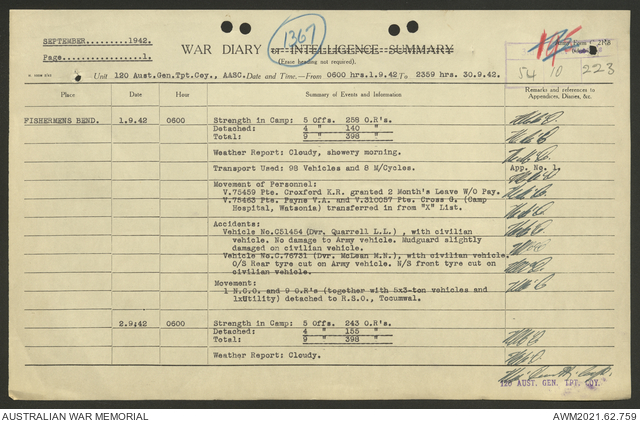 SEPTEMBER.........1942.
Page..................1.
1367
WAR DIARY or INTELLIGENCE SUMMARY
(Erase heading not required).
54 10 223
Unit 120 Aust.Gen.Tpt.Coy., AASC. Date and Time.—From 0600 hrs.1.9.42 To 2359 hrs. 30.9.42.
Place Date Hour Summary of Events and Information Remarks and references to
Appendices, Diaries, &c.
FISHERMENS BEND. 1.9.42 0600 Strength in Camp: 5 Offs. 258 O.R's.
Detached: 4 " 140 "
Total: 9 " 398 "
Weather Report: Cloudy, showery morning.
Transport Used: 98 Vehicles and 8 M/Cycles. App. No. 1.
Movement of Personnel:
V.75459 Pte. Croxford K.R. granted 2 Month's Leave W/O Pay.
V.75463 Pte. Payne V.A. and V.310057 Pte. Cross G. (Camp
Hospital, Watsonia) transferred in from "X" List.
Accidents:
Vehicle No.C51454 (Dvr. Quarrell L.L.) , with civilian
vehicle. No damage to Army vehicle. Mudguard slightly
damaged on civilian vehicle.
Vehicle No.C.76731 (Dvr. McLean M.N.), with civilian vehicle.
O/S Rear tyre cut on Army vehicle. N/S front tyre cut on
civilian vehicle.
Movement:
1 N.C.O. and 9 O.R's (together with 5x3-ton vehicles and
1xUtility) detached to R.S.O., Tocumwal.
2.9;42 0600 Strength in Camp: 5 Offs. 243 O.R's.
Detached: 4 " 155 "
Total: 9 " 398 "
Weather Report: Cloudy.
120 AUST. GEN. TPT. COY.
AUSTRALIAN WAR MEMORIAL AWM2021.62.759